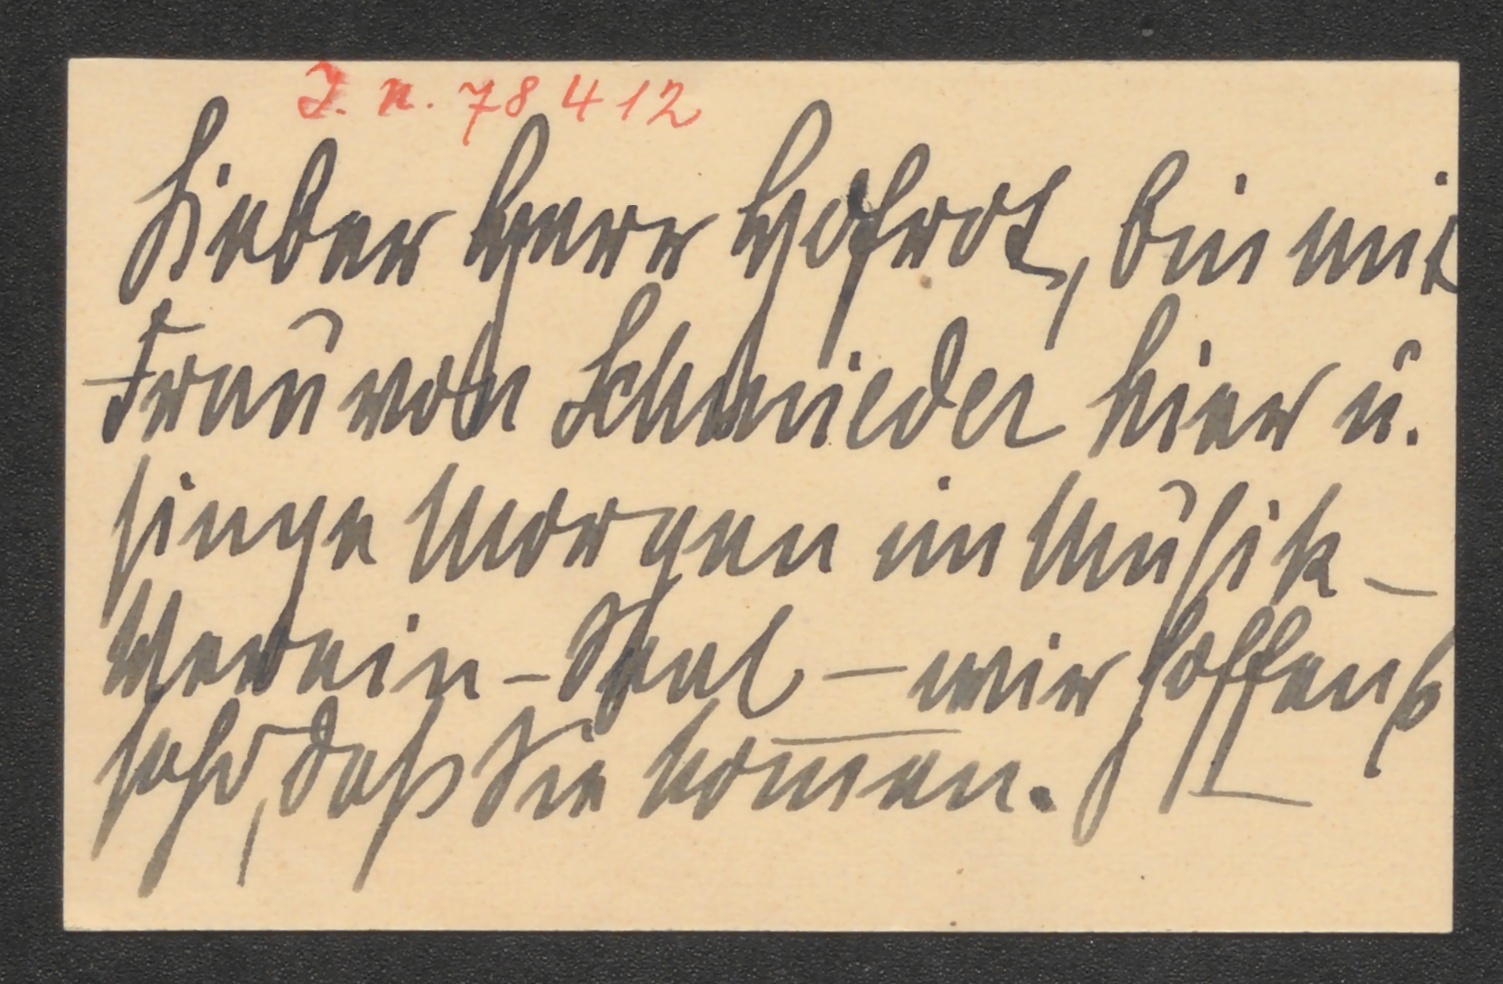 I. n. 78412
Lieber Herr Hofrat, bin mit
Frau von Schmieder hier u.
singe Morgen im Musik-
Verein-Saal – wir hoffen so
sehr, daß Sie kommen.